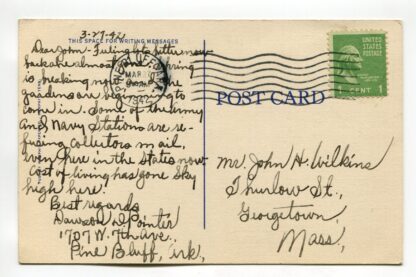 3-27-42
THIS SPACE FOR WRITING MESSAGES
Dear John - Feeling to better now
back almost Spring
is breaking now and the
gardens are beginning to
come in. Some of the Army
and Navy Stations are re-
fusing collectors mail,
even here in the States now
Cost of living has gone sky
high here!
Best regards
Dawson D Pointer
1707 W. 7th Ave.,
Pine Bluff, Ark,
PINE BLUFF, ARK.
MAR
1942
UNITED
STATES
POSTAGE
1 CENT 1
POST CARD
Mr. John H. Wilkins
Thurlow St.,
Georgetown,
Mass,